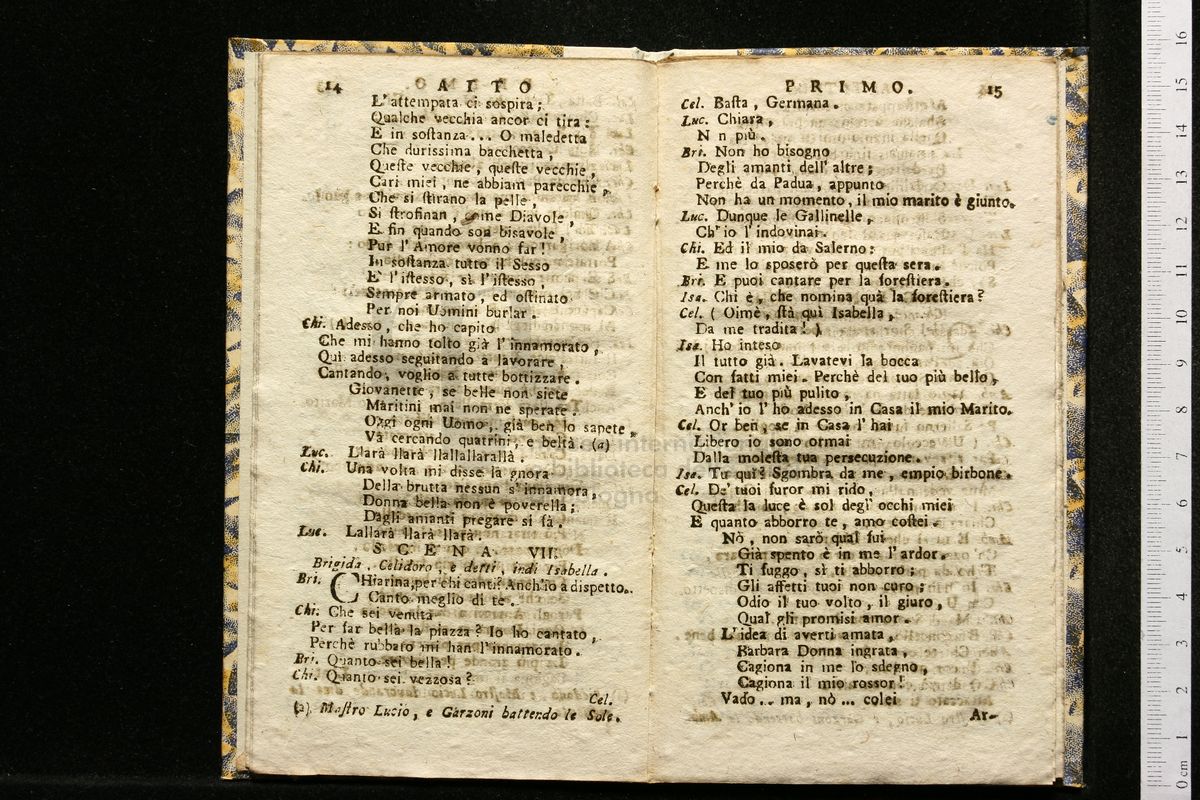 14 ATTO
L'attempata ci sospira;
Qualche vecchia ancor ci tira:
E in sostanza... O maledetta
Che durissima bacchetta,
Queste vecchie, queste vecchie,
Cari miei, ne abbiam parecchie,
Che si stirano la pelle,
Si strofinan, come Diavole,
E fin quando son bisavole,
Pur l'Amore vonno far!
In sostanza tutto il Sesso
E l'istesso, sì l'istesso,
Sempre armato, ed ostinato
Per noi Uomini burlar.
Chi. Adesso, che ho capito
Che mi hanno tolto già l'innamorato,
Quì adesso seguitando a lavorare,
Cantando, voglio a tutte bottizzare.
Giovanette, se belle non siete
Maritini mai non ne sperate:
Oggi ogni Uomo, già ben lo sapete,
Và cercando quatrini, e beltà. (a)
Luc. Llarà llarà llallallarallà.
Chi. Una volta mi disse la gnora
Della brutta nessun s'innamora,
Donna bella non è poverella;
Dagli amanti pregare si fà.
Luc. Lallarà llarà llarà.
SCENA VII.
Brigida, Celidoro, e detti, indi Isabella.
Bri. CHiarina, per chi canti? Anch'io a dispetto.
Canto meglio di te.
Chi. Che sei venuta
Per far bella la piazza? Io ho cantato,
Perchè rubbato mi han l'innamorato.
Bri. Quanto sei bella!
Chi. Quanto sei vezzosa?
Cel.
(a) Mastro Lucio, e Garzoni battendo le Sole.
PRIMO. 15
Cel. Basta, Germana.
Luc. Chiara,
N n più.
Bri. Non ho bisogno
Degli amanti dell'altre;
Perchè da Padua, appunto
Non ha un momento, il mio marito è giunto.
Luc. Dunque le Gallinelle,
Ch'io l'indovinai.
Chi. Ed il mio da Salerno:
E me lo sposerò per questa sera.
Bri. E puoi cantare per la forestiera.
Isa. Chi è, che nomina quà la forestiera?
Cel. (Oimè, stà quì Isabella,
Da me tradita!)
Isa. Ho inteso
Il tutto già. Lavatevi la bocca
Con fatti miei. Perchè del tuo più bello,
E del tuo più pulito,
Anch'io l'ho adesso in Casa il mio Marito.
Cel. Or ben, se in Casa l'hai
Libero io sono ormai
Dalla molesta tua persecuzione.
Isa. Tu quì? Sgombra da me, empio birbone.
Cel. De' tuoi furor mi rido,
Questa la luce è sol degl'occhi miei
E quanto abborro te, amo costei.
Nò, non sarò qual fui
Già spento è in me l'ardor.
Ti fuggo, sì ti abborro;
Gli affetti tuoi non curo;
Odio il tuo volto, il giuro,
Qual gli promisi amor.
L'idea di averti amata,
Barbara Donna ingrata,
Cagiona in me lo sdegno,
Cagiona il mio rossor!
Vado... ma, nò... colei
Ar-